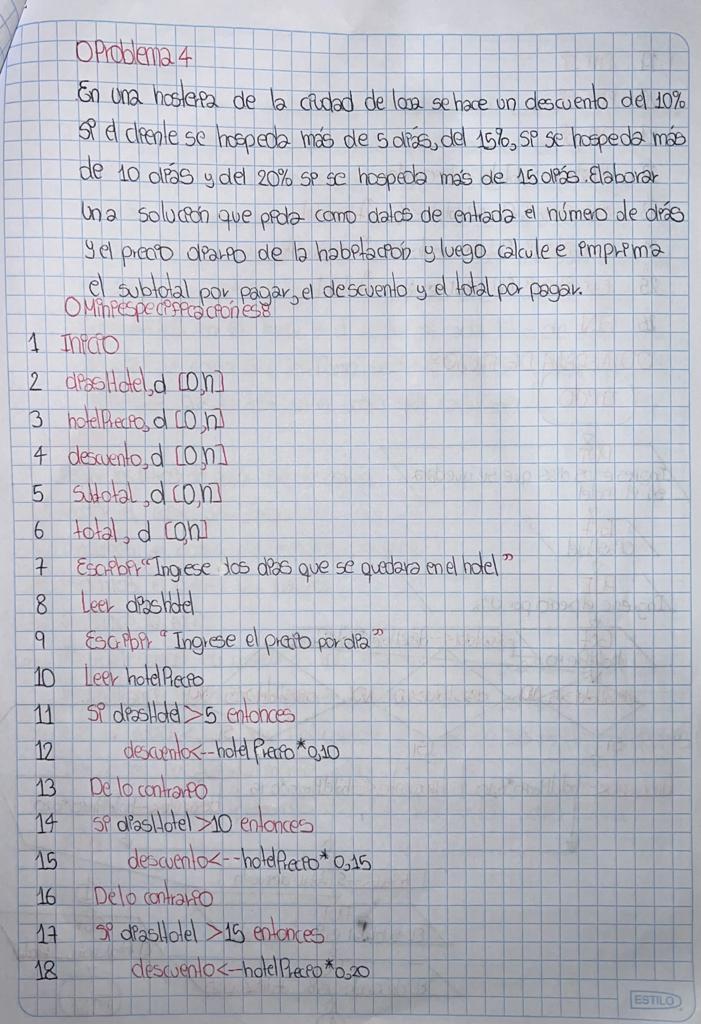 ○Problema 4
En una hostería de la ciudad de loja se hace un descuento del 10%
si el cliente se hospeda más de 5 días, del 15%, si se hospeda más
de 10 días y del 20% si se hospeda más de 15 días. Elaborar
una solución que pida como datos de entrada el número de días
y el precio diario de la habitación y luego calcule e imprima
el subtotal por pagar, el descuento y el total por pagar.
○Miniespecificaciones:
1 Inicio
2 diasHotel, d [0,n]
3 hotelPrecio, d [0,n]
4 descuento, d [0,n]
5 subtotal, d [0,n]
6 total, d [0,n]
7 Escribir "Ingese los dias que se quedara en el hotel"
8 Leer diasHotel
9 Escribir "Ingrese el precio por dia"
10 Leer hotelPrecio
11 si diasHotel >5 entonces
12 descuento<--hotelPrecio*0,10
13 De lo contrario
14 si diasHotel >10 entonces
15 descuento<--hotelPrecio*0,15
16 De lo contrario
17 si diasHotel >15 entonces
18 descuento<--hotelPrecio*0,20
ESTILO